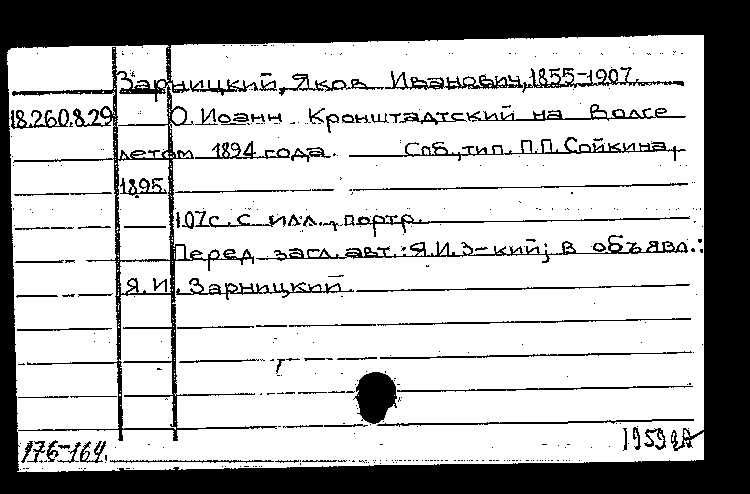 Зарницкий, Яков Иванович, 1855-1907.
18.260.8.29 О. Иоанн Кронштадтский на Волге
летом 1894 года. Спб., тип. П.П. Сойкина,
1895.
107с. с илл., портр.
Перед загл. авт.: Я.И. З-кий; в объявл.:
Я.И. Зарницкий.
176-164.